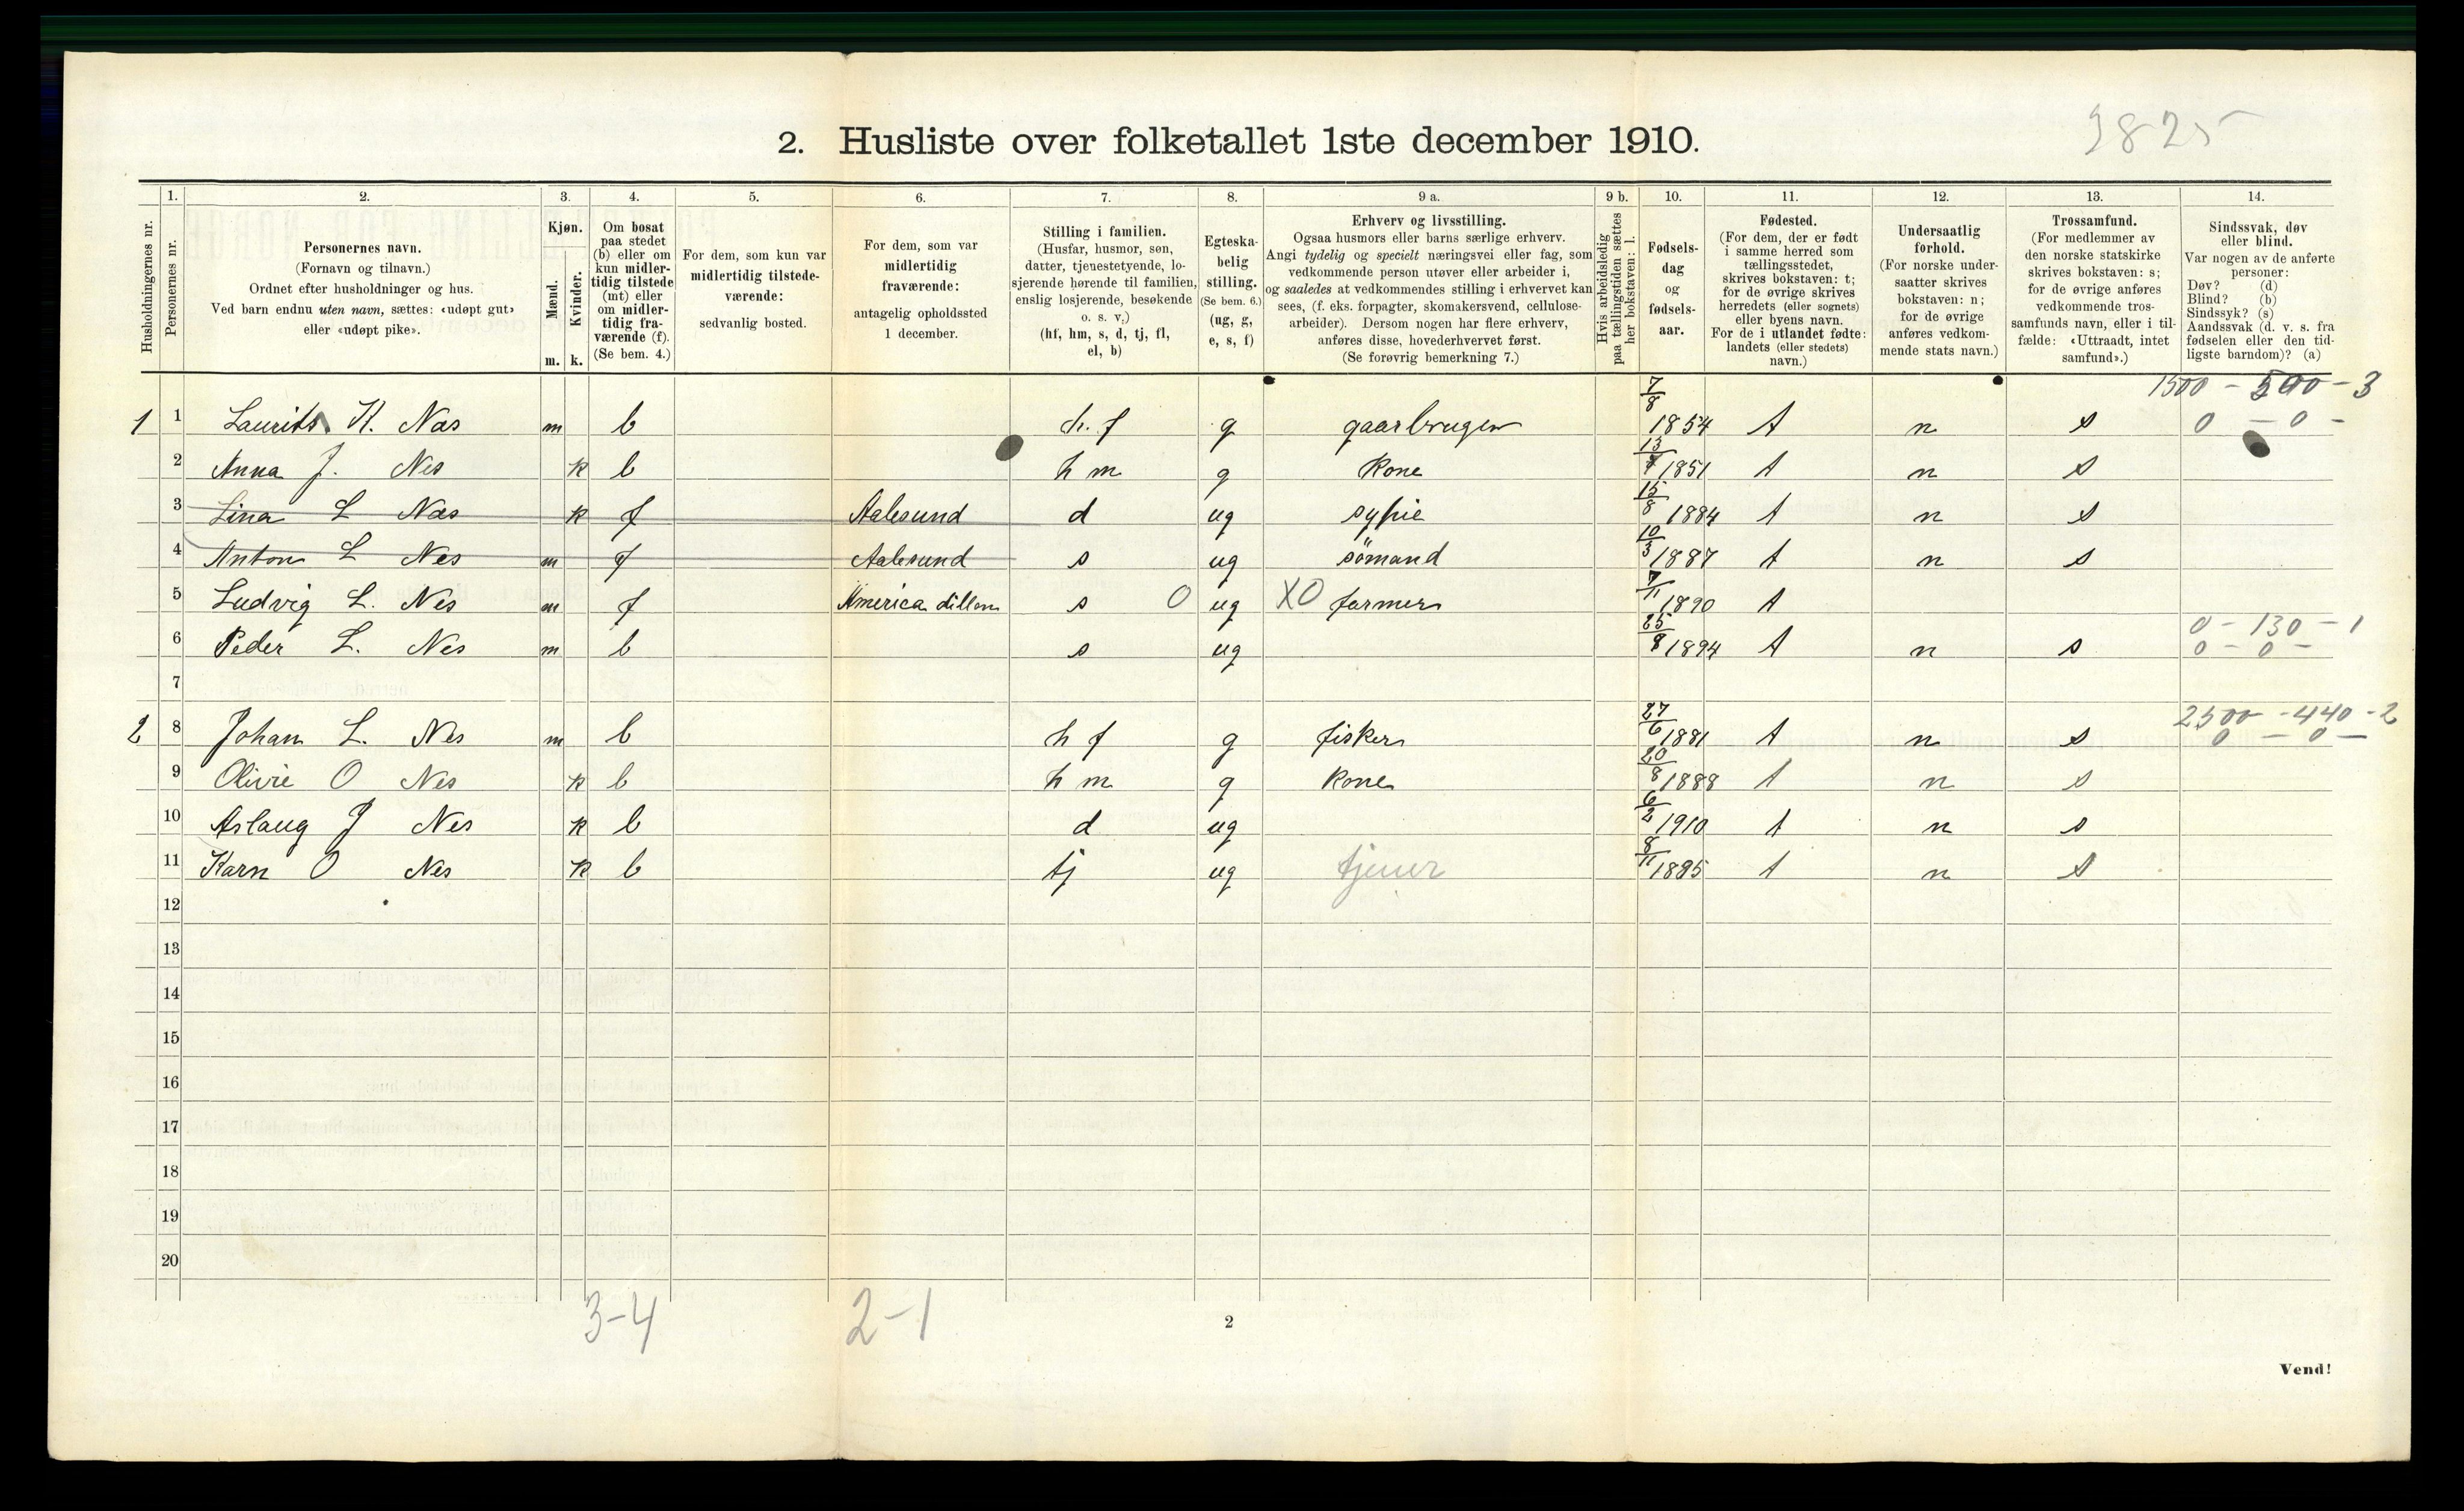 9825
2. Husliste over folketallet 1ste december 1910.
Husholdningernes nr.
1. Personernes nr.
2. Personernes navn. (Fornavn og tilnavn.) Ordnet efter husholdninger og hus. Ved barn endnu uten navn, sættes: «udøpt gut» eller «udøpt pike».
3. Kjøn. Mænd. m. Kvinder. k.
4. Om bosat paa stedet (b) eller om kun midlertidig tilstede (mt) eller om midlertidig fraværende (f). (Se bem. 4.)
5. For dem, som kun var midlertidig tilstedeværende: sedvanlig bosted.
6. For dem, som var midlertidig fraværende: antagelig opholdssted 1 december.
7. Stilling i familien. (Husfar, husmor, søn, datter, tjenestetyende, losjerende hørende til familien, enslig losjerende, besøkende o. s. v.) (hf, hm, s, d, tj, fl, el, b)
8. Egteskabelig stilling. (Se bem. 6.) (ug, g, e, s, f)
9 a. Erhverv og livsstilling. Ogsaa husmors eller barns særlige erhverv. Angi tydelig og specielt næringsvei eller fag, som vedkommende person utøver eller arbeider i, og saaledes at vedkommendes stilling i erhvervet kan sees, (f. eks. forpagter, skomakersvend, cellulosearbeider). Dersom nogen har flere erhverv, anføres disse, hovederhvervet først. (Se forøvrig bemerkning 7.)
9 b. Hvis arbeidsledig paa tællingstiden sættes her bokstaven: l.
10. Fødselsdag og fødselsaar.
11. Fødested. (For dem, der er født i samme herred som tællingsstedet, skrives bokstaven: t; for de øvrige skrives herredets (eller sognets) eller byens navn. For de i utlandet fødte: landets (eller stedets) navn.)
12. Undersaatlig forhold. (For norske undersaatter skrives bokstaven: n; for de øvrige anføres vedkommende stats navn.)
13. Trossamfund. (For medlemmer av den norske statskirke skrives bokstaven: s; for de øvrige anføres vedkommende trossamfunds navn, eller i tilfælde: «Uttraadt, intet samfund».)
14. Sindssvak, døv eller blind. Var nogen av de anførte personer: Døv? (d) Blind? (b) Sindssyk? (s) Aandssvak (d. v. s. fra fødselen eller den tidligste barndom)? (a)
1500 - 500 - 3
1 1 Laurits K. Næs m b h. f g gaarbruger 7/8 1854 t n s 0 - 0 -
2 Anna J. Nes k b h m g Kone 13/ 1851 t n s
3 Lina L Næs k f Aalesund d ug sypie 15/8 1884 t n s
4 Anton L Nes m f Aalesund s ug sömand 10/3 1887 t n s
5 Ludvig L. Nes m f America dillon s 0 ug X0 farmer 7/11 1890 t
0 - 130 - 1
6 Peder L. Nes m b s ug 25/8 1894 t n s 0 - 0 -
7
2500 - 440 - 2
2 8 Johan L. Nes m b h f g fisker 27/6 1881 t n s 0 - 0 -
9 Olivie O Nes k b h m g Kone 20/8 1888 t n s
10 Aslaug J Nes k b d ug 6/2 1910 t n s
11 Karn O Nes k b tj ug tjener 8/11 1895 t n s
12
13
14
15
16
17
18
19
20
3-4 2-1
2
Vend!